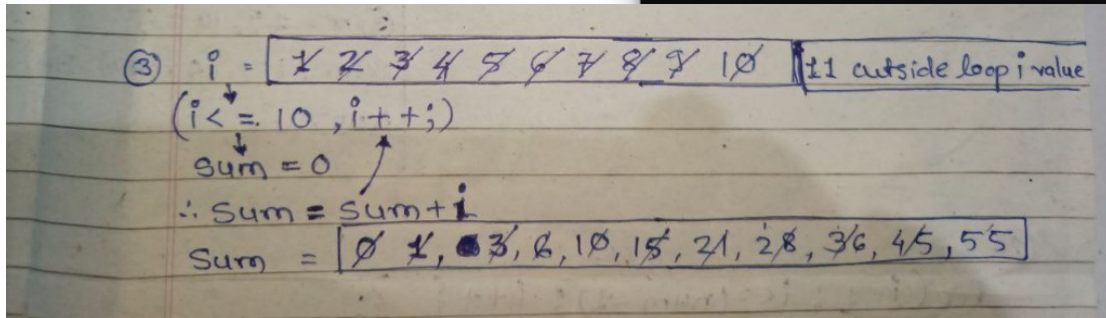 ③ i = 1 2 3 4 5 6 7 8 9 10 11 outside loop i value
(i <= 10 , i++;)
sum = 0
∴ sum = sum + i
Sum = 0 1, 3, 6, 10, 15, 21, 28, 36, 45, 55